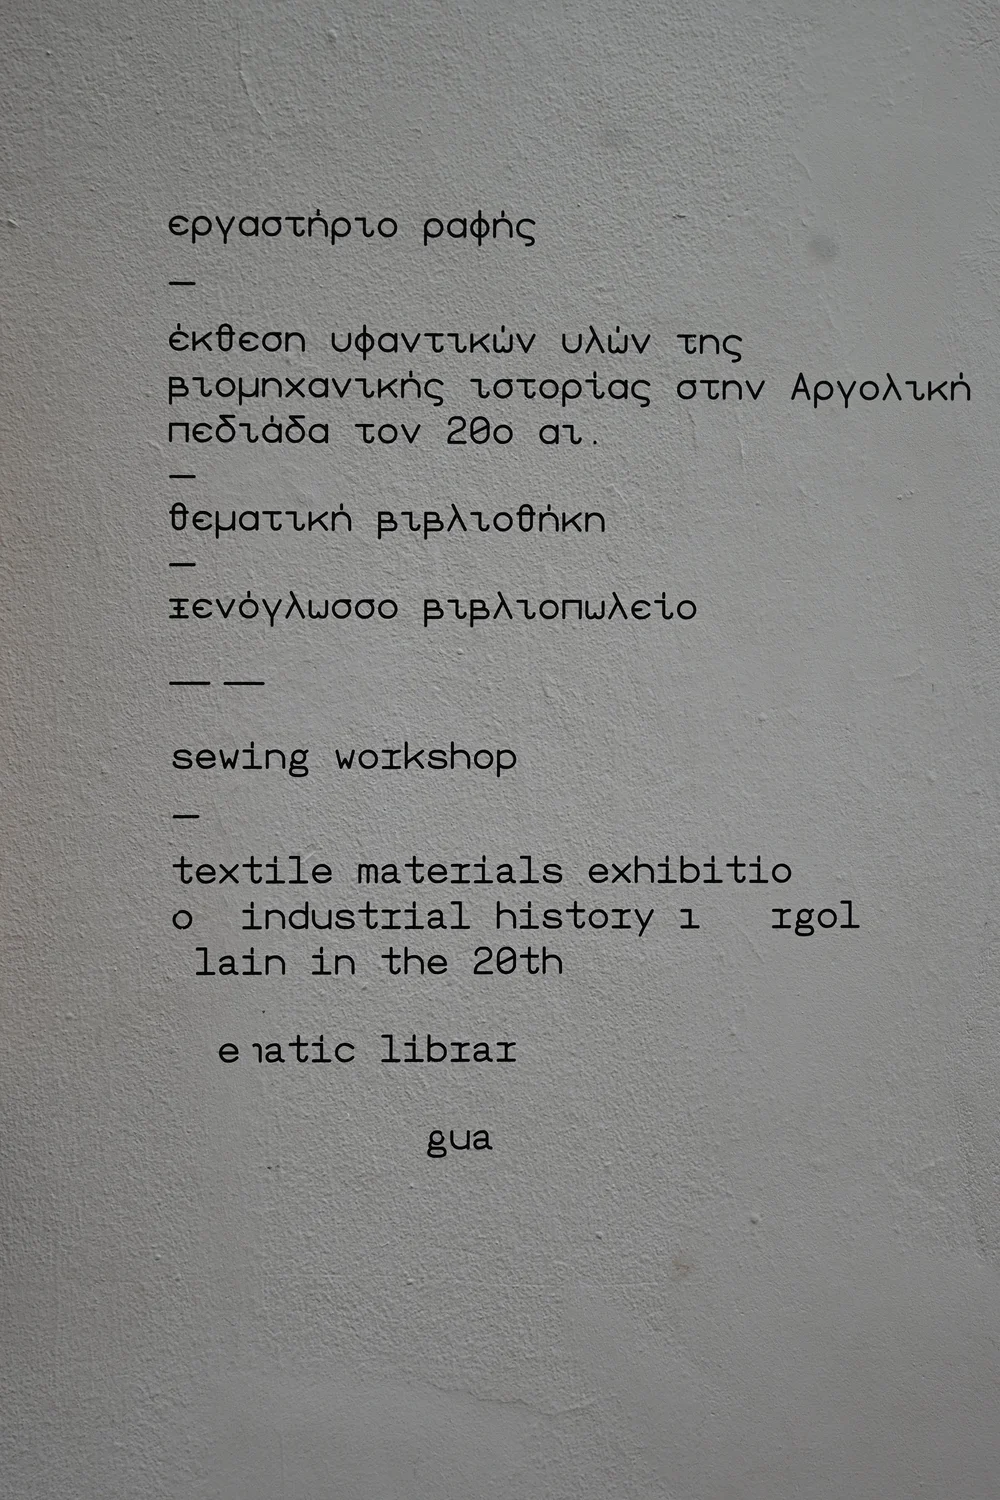 εργαστήριο ραφής
—
έκθεση υφαντικών υλών της
βιομηχανικής ιστορίας στην Αργολική
πεδιάδα τον 20ο αι.
—
θεματική βιβλιοθήκη
—
ξενόγλωσσο βιβλιοπωλείο
— —
sewing workshop
—
textile materials exhibitio
o industrial history rgol
lain in the 20th
atic librar
gua